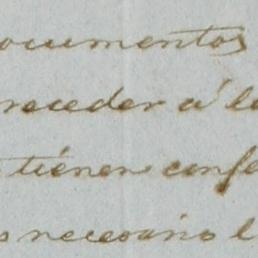 ocumentos
receder á la
tienen confe
s necesario l